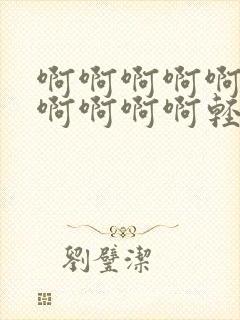 啊啊啊啊啊
啊啊啊啊輕
劉璧潔